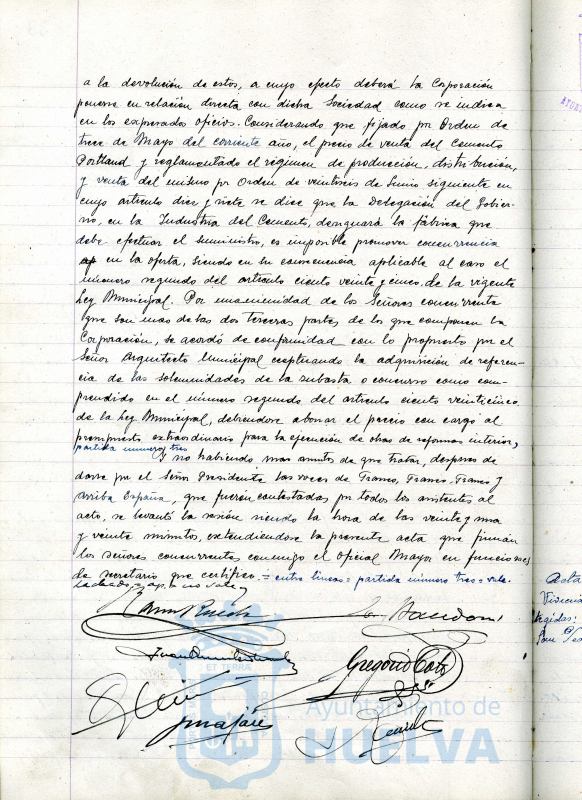 a la devolución de estos, a cuyo efecto deberá la Corporación
ponerse en relación directa con dicha Sociedad como se indica
en los expresados oficios. Considerando que fijado por Orden de
trece de Mayo del corriente año, el precio de venta del Cemento
Portland y reglamentado el régimen de producción, distribución,
y venta del mismo por Orden de veintiseis de Junio siguiente en
cuyo artículo diez y siete se dice que la Delegación del Gobier-
no, en la Industria del Cemento, designará la fábrica que
debe efectuar el suministro, es imposible promover concurrencia
en la oferta, siendo en su consecuencia aplicable al caso el
número segundo del artículo ciento veinte y cinco de la vigente
Ley Municipal. Por unanimidad de los Señores concurrentes
que son mas de las dos terceras partes de los que componen la
Corporación, se acordó de conformidad con lo propuesto por el
Señor Arquitecto Municipal exceptuando la adquisición de referen-
cia de las solemnidades de la subasta o concurso como com-
prendido en el número segundo del artículo ciento veinticinco
de la Ley Municipal, debiendose abonar el precio con cargo al
presupuesto extraordinario para la ejecución de obras de reforma interior,
partida numero tres
Y no habiendo mas asuntos de que tratar, despues de
darse por el Señor Presidente las voces de Franco, Franco, Franco y
Arriba España, que fueron contestadas por todos los asistentes al
acto, se levantó la sesión siendo la hora de las veinte y una
y veinte minutos, extendiendose la presente acta que firman
los señores concurrentes conmigo el Oficial Mayor en funciones
de secretario que certifico.= entre lineas= partida número tres= vale.
Gregorio
Ayuntamiento de
HUELVA
Acta